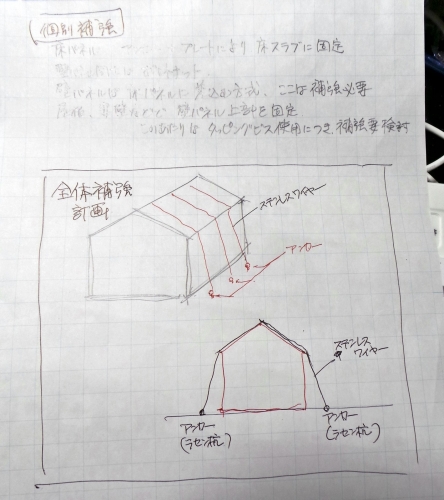 個別補強
プレートにより 床スラブに固定
ここは補強必要
壁パネル上部を固定
このあたりは タッピングビス使用につき、補強要検討
全体補強
計画
ステンレスワイヤー
アンカー
ステンレス
ワイヤー
アンカー
(ラセン杭)
アンカー
(ラセン杭)